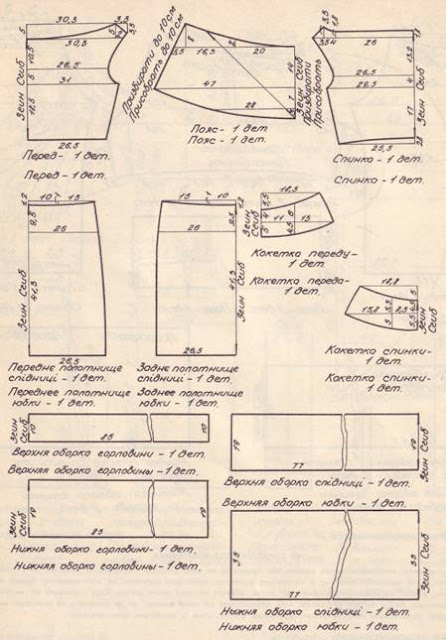 30,3
3,3
5
3,5
30,5
10,5
26,5
5
31
Згин Сгиб
12,5
26,5
Перед - 1 дет.
Перед - 1 дет.
Призбирати до 10 см
Присобрать до 10 см
8
3,5
16,5
20
47
14
28
Згин Сгиб
Пояс - 1 дет.
Пояс - 1 дет.
Призбирати
Присобрать
26
13,2
26,5
4
29,5
17
25,5
Згин Сгиб
Спинка - 1 дет.
Спинка - 1 дет.
1,2
10
15
9,5
26
Згин Сгиб
41,3
26,5
Переднє полотнище
спідниці - 1 дет.
Переднее полотнище
юбки - 1 дет.
15
1
10
26
Згин Сгиб
41,3
26,5
Заднє полотнище
спідниці - 1 дет.
Заднее полотнище
юбки - 1 дет.
18,5
5,5
4
11
15
Згин
Сгиб
Кокетка переду -
1 дет.
Кокетка переда -
1 дет.
18,8
13,8
Згин
Сгиб
Кокетка спинки -
1 дет.
Кокетка спинки -
1 дет.
Згин
Сгиб
10
85
10
Верхня оборка горловини - 1 дет.
Верхняя оборка горловины - 1 дет.
Згин
Сгиб
19
85
19
Нижня оборка горловини - 1 дет.
Нижняя оборка горловины - 1 дет.
19
77
19
Згин
Сгиб
Верхня оборка спідниці - 1 дет.
Верхняя оборка юбки - 1 дет.
35
77
35
Згин Сгиб
Нижня оборка спідниці - 1 дет.
Нижняя оборка юбки - 1 дет.